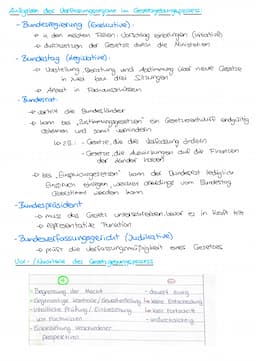 Aufgaben der Verfassungsorgane im Gesetzgebungsprozess:
- Bundesregierung (Exekutive):
↳ in den meisten Fällen: Vorschlag einbringen (Initiative)
↳ durchsetzen der Gesetze durch die Ministerien
- Bundestag (Legislative):
↳ Vorstellung, Beratung und Abstimmung über neue Gesetze
in zwei bzw. drei Sitzungen
↳ Arbeit in Fachausschüssen
- Bundesrat:
↳ vertritt die Bundesländer
↳ kann bei „Zustimmungsgesetzen" ein Gesetzentwurf endgültig
ablehnen und somit verhindern
↳ z.B.: - Gesetze, die die Verfassung ändern
- Gesetze, die Auswirkungen auf die Finanzen
der Länder haben
↳ bei „Einspruchsgesetzen" kann der Bundesrat lediglich
Einspruch einlegen, welcher allerdings vom Bundestag
überstimmt werden kann
- Bundespräsident
↳ muss das Gesetz unterschreiben, bevor es in Kraft tritt
↳ repräsentative Funktion
- Bundesverfassungsgericht (Judikative)
↳ prüft die Verfassungsmäßigkeit eines Gesetzes
Vor- / Nachteile des Gesetzgebungsprozess
+ −
- Begrenzung der Macht - dauert lange
- Gegenseitige Kontrolle / Gewaltenteilung ↳ keine Entscheidung
- Inhaltliche Prüfung / Einbeziehung ↳ kein Fortschritt
von Fachwissen - undurchsichtig
- Einbeziehung verschiedener
Perspektiven